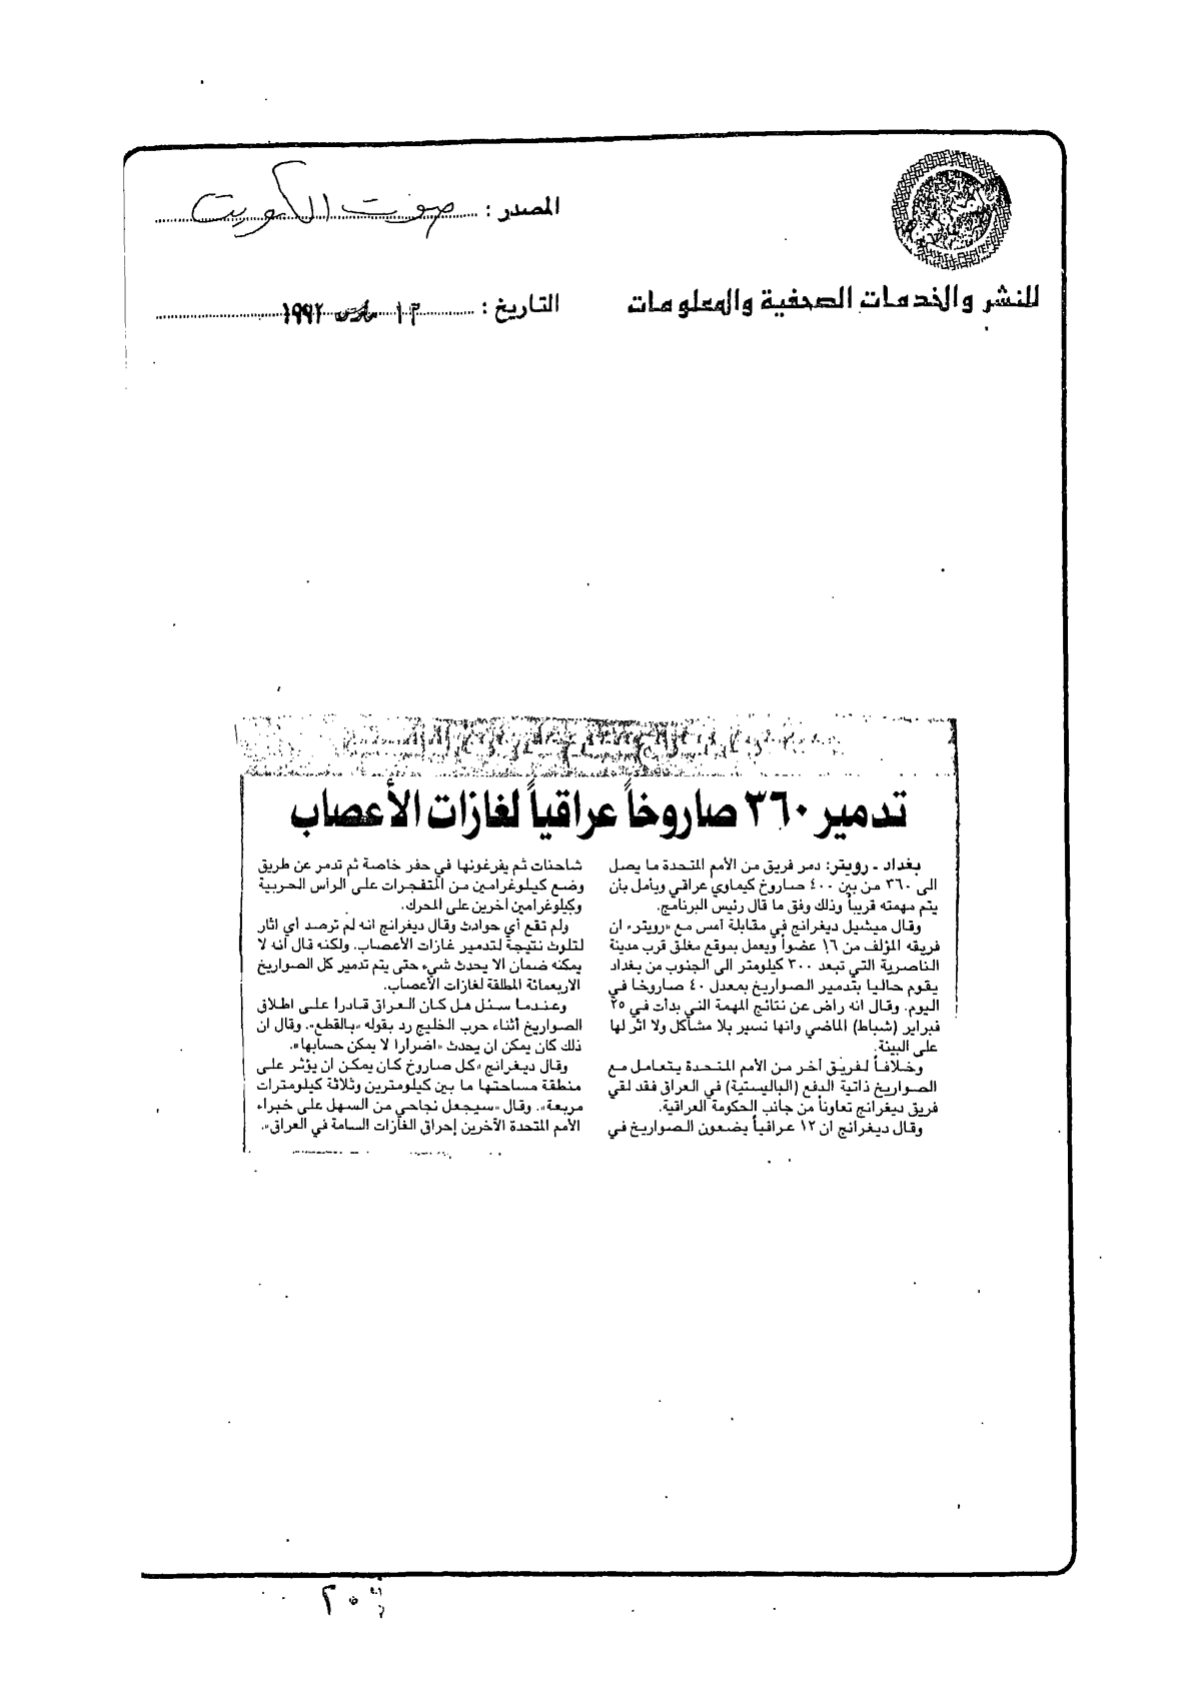 المصدر : صوت الكويت
للنشر والخدمات الصحفية والمعلومات
التاريخ : ١٣ مارس ١٩٩٢
تدمير ٣٦٠ صاروخاً عراقياً لغازات الأعصاب
بغداد ـ رويتر: دمر فريق من الأمم المتحدة ما يصل
الى ٣٦٠ من بين ٤٠٠ صاروخ كيماوي عراقي ويأمل بأن
يتم مهمته قريباً وذلك وفق ما قال رئيس البرنامج.
وقال ميشيل ديغرانج في مقابلة أمس مع «رويتر» ان
فريقه المؤلف من ١٦ عضواً ويعمل بموقع مغلق قرب مدينة
الناصرية التي تبعد ٣٠٠ كيلومتر الى الجنوب من بغداد
يقوم حاليا بتدمير الصواريخ بمعدل ٤٠ صاروخا في
اليوم. وقال انه راض عن نتائج المهمة التي بدأت في ٢٥
فبراير (شباط) الماضي وانها تسير بلا مشاكل ولا اثر لها
على البيئة.
وخلافاً لفريق آخر من الأمم المتحدة يتعامل مع
الصواريخ ذاتية الدفع (الباليستية) في العراق فقد لقي
فريق ديغرانج تعاوناً من جانب الحكومة العراقية.
وقال ديغرانج ان ١٢ عراقياً يضعون الصواريخ في
شاحنات ثم يفرغونها في حفر خاصة ثم تدمر عن طريق
وضع كيلوغرامين من المتفجرات على الرأس الحربية
وكيلوغرامين آخرين على المحرك.
ولم تقع أي حوادث وقال ديغرانج انه لم ترصد أي اثار
لتلوث نتيجة لتدمير غازات الأعصاب. ولكنه قال انه لا
يمكنه ضمان الا يحدث شيء حتى يتم تدمير كل الصواريخ
الاربعمائة المطلقة لغازات الأعصاب.
وعندما سئل هل كان العراق قادرا على اطلاق
الصواريخ أثناء حرب الخليج رد بقوله «بالقطع». وقال ان
ذلك كان يمكن ان يحدث «اضرارا لا يمكن حسابها».
وقال ديغرانج «كل صاروخ كان يمكن ان يؤثر على
منطقة مساحتها ما بين كيلومترين وثلاثة كيلومترات
مربعة». وقال «سيجعل نجاحي من السهل على خبراء
الأمم المتحدة الآخرين إحراق الغازات السامة في العراق».